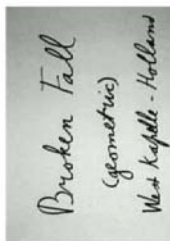 Broken Fall
(geometric)
West Kapelle - Holland